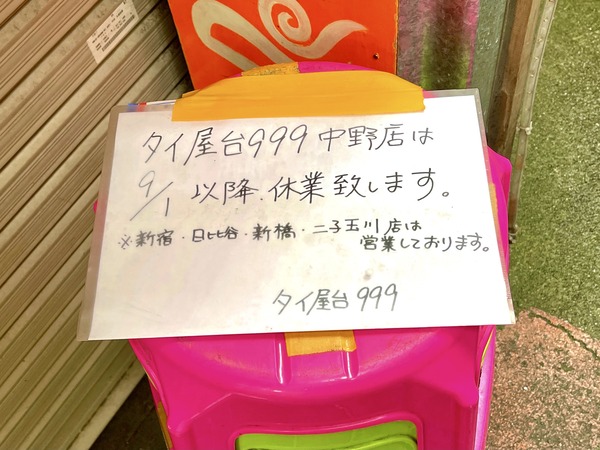 タイ屋台999 中野店は
9/1 以降、休業致します。
※新宿・日比谷・新橋・二子玉川店は
営業しております。
タイ屋台 999